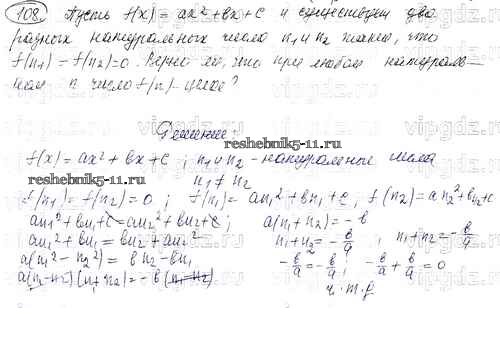 108. Пусть f(x) = ax² + bx + c и существуют два
разных натуральных числа n₁ и n₂ такие, что
f(n₁) = f(n₂) = 0. Верно ли, что при любом натураль-
ном n число f(n) - целое?
Решение:
reshebnik5-11.ru
f(x) = ax² + bx + c ; n₁ и n₂ - натуральные числа
reshebnik5-11.ru
n₁ ≠ n₂
f(n₁) = f(n₂) = 0 ; f(n₁) = an₁² + bn₁ + c, f(n₂) = an₂² + bn₂ + c
an₁² + bn₁ + c = an₂² + bn₂ + c ;
an₁² + bn₁ = bn₂ + an₂²
a(n₁² - n₂²) = bn₂ - bn₁
a(n₁ - n₂)(n₁ + n₂) = -b(n₁ - n₂)
a(n₁ + n₂) = -b
n₁ + n₂ = -b/a ; n₁ + n₂ = -b/a
-b/a = -b/a ; -b/a + b/a = 0
ч.т.д
vipgdz.ru